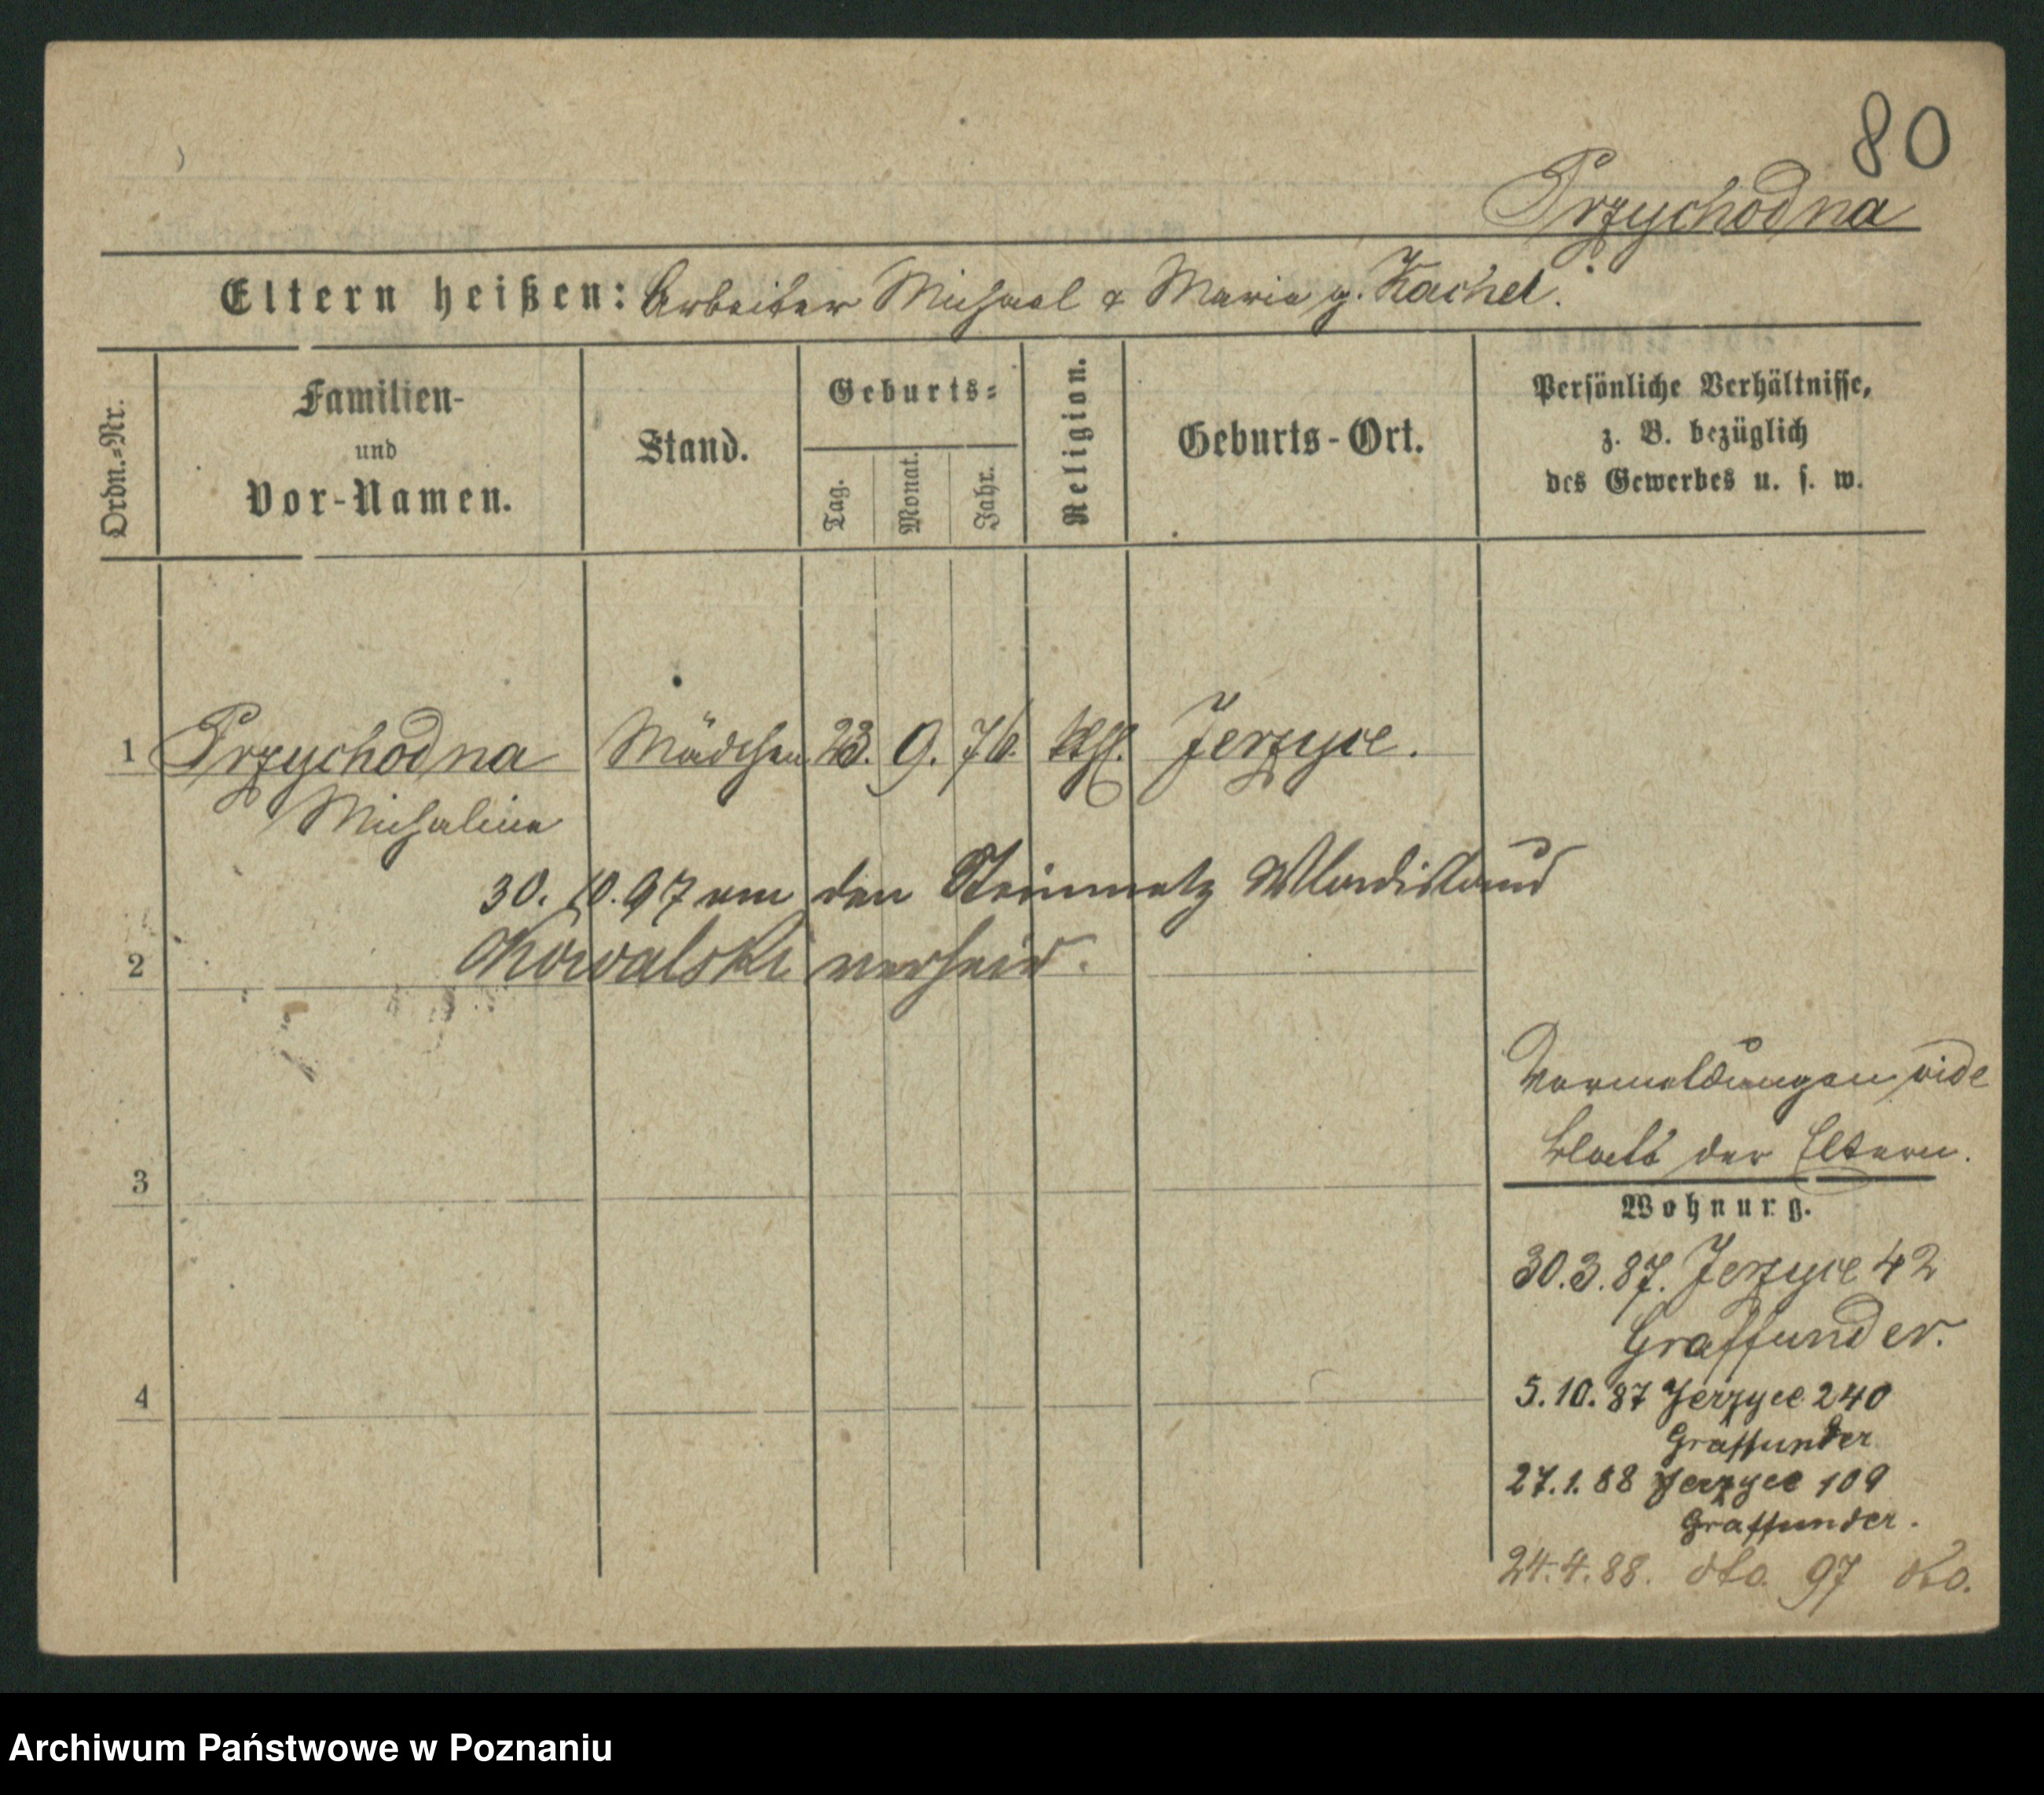 80
Przychodna
Eltern heißen: Arbeiter Michael & Marie g. Kachel.
Ordn.-Nr.
Familien-
und
Vor-Namen.
Stand.
Geburts-
Tag.
Monat.
Jahr.
Religion.
Geburts-Ort.
Persönliche Verhältnisse,
z. B. bezüglich
des Gewerbes u. s. w.
1 Przychodna Mädchen 23. 9. 76. kth. Jerzyce.
Michalina
30. 10. 97 am den Steinmetz Wladislaus
2 Kowalski verheir.
Vormeldungen vide
blatt der Eltern.
3
Wohnung.
30.3.87. Jerzyce 42
Graffunder.
4
5.10.87 Jerzyce 240
Graffunder
27.1.88 Jerzyce 109
Graffunder.
24.4.88. dto. 97 dto.
Archiwum Państwowe w Poznaniu